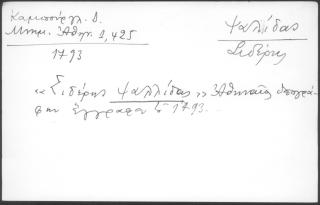 Καμπούρογλ. Δ.
Μνημ. Ἀθην. 1, 425
1793
Ψαλλίδας
Σιδέρης
"Σιδέρης Ψαλλίδας" Ἀθηναῖος ὑπογρά-
φει ἔγγραφα τῷ 1793.